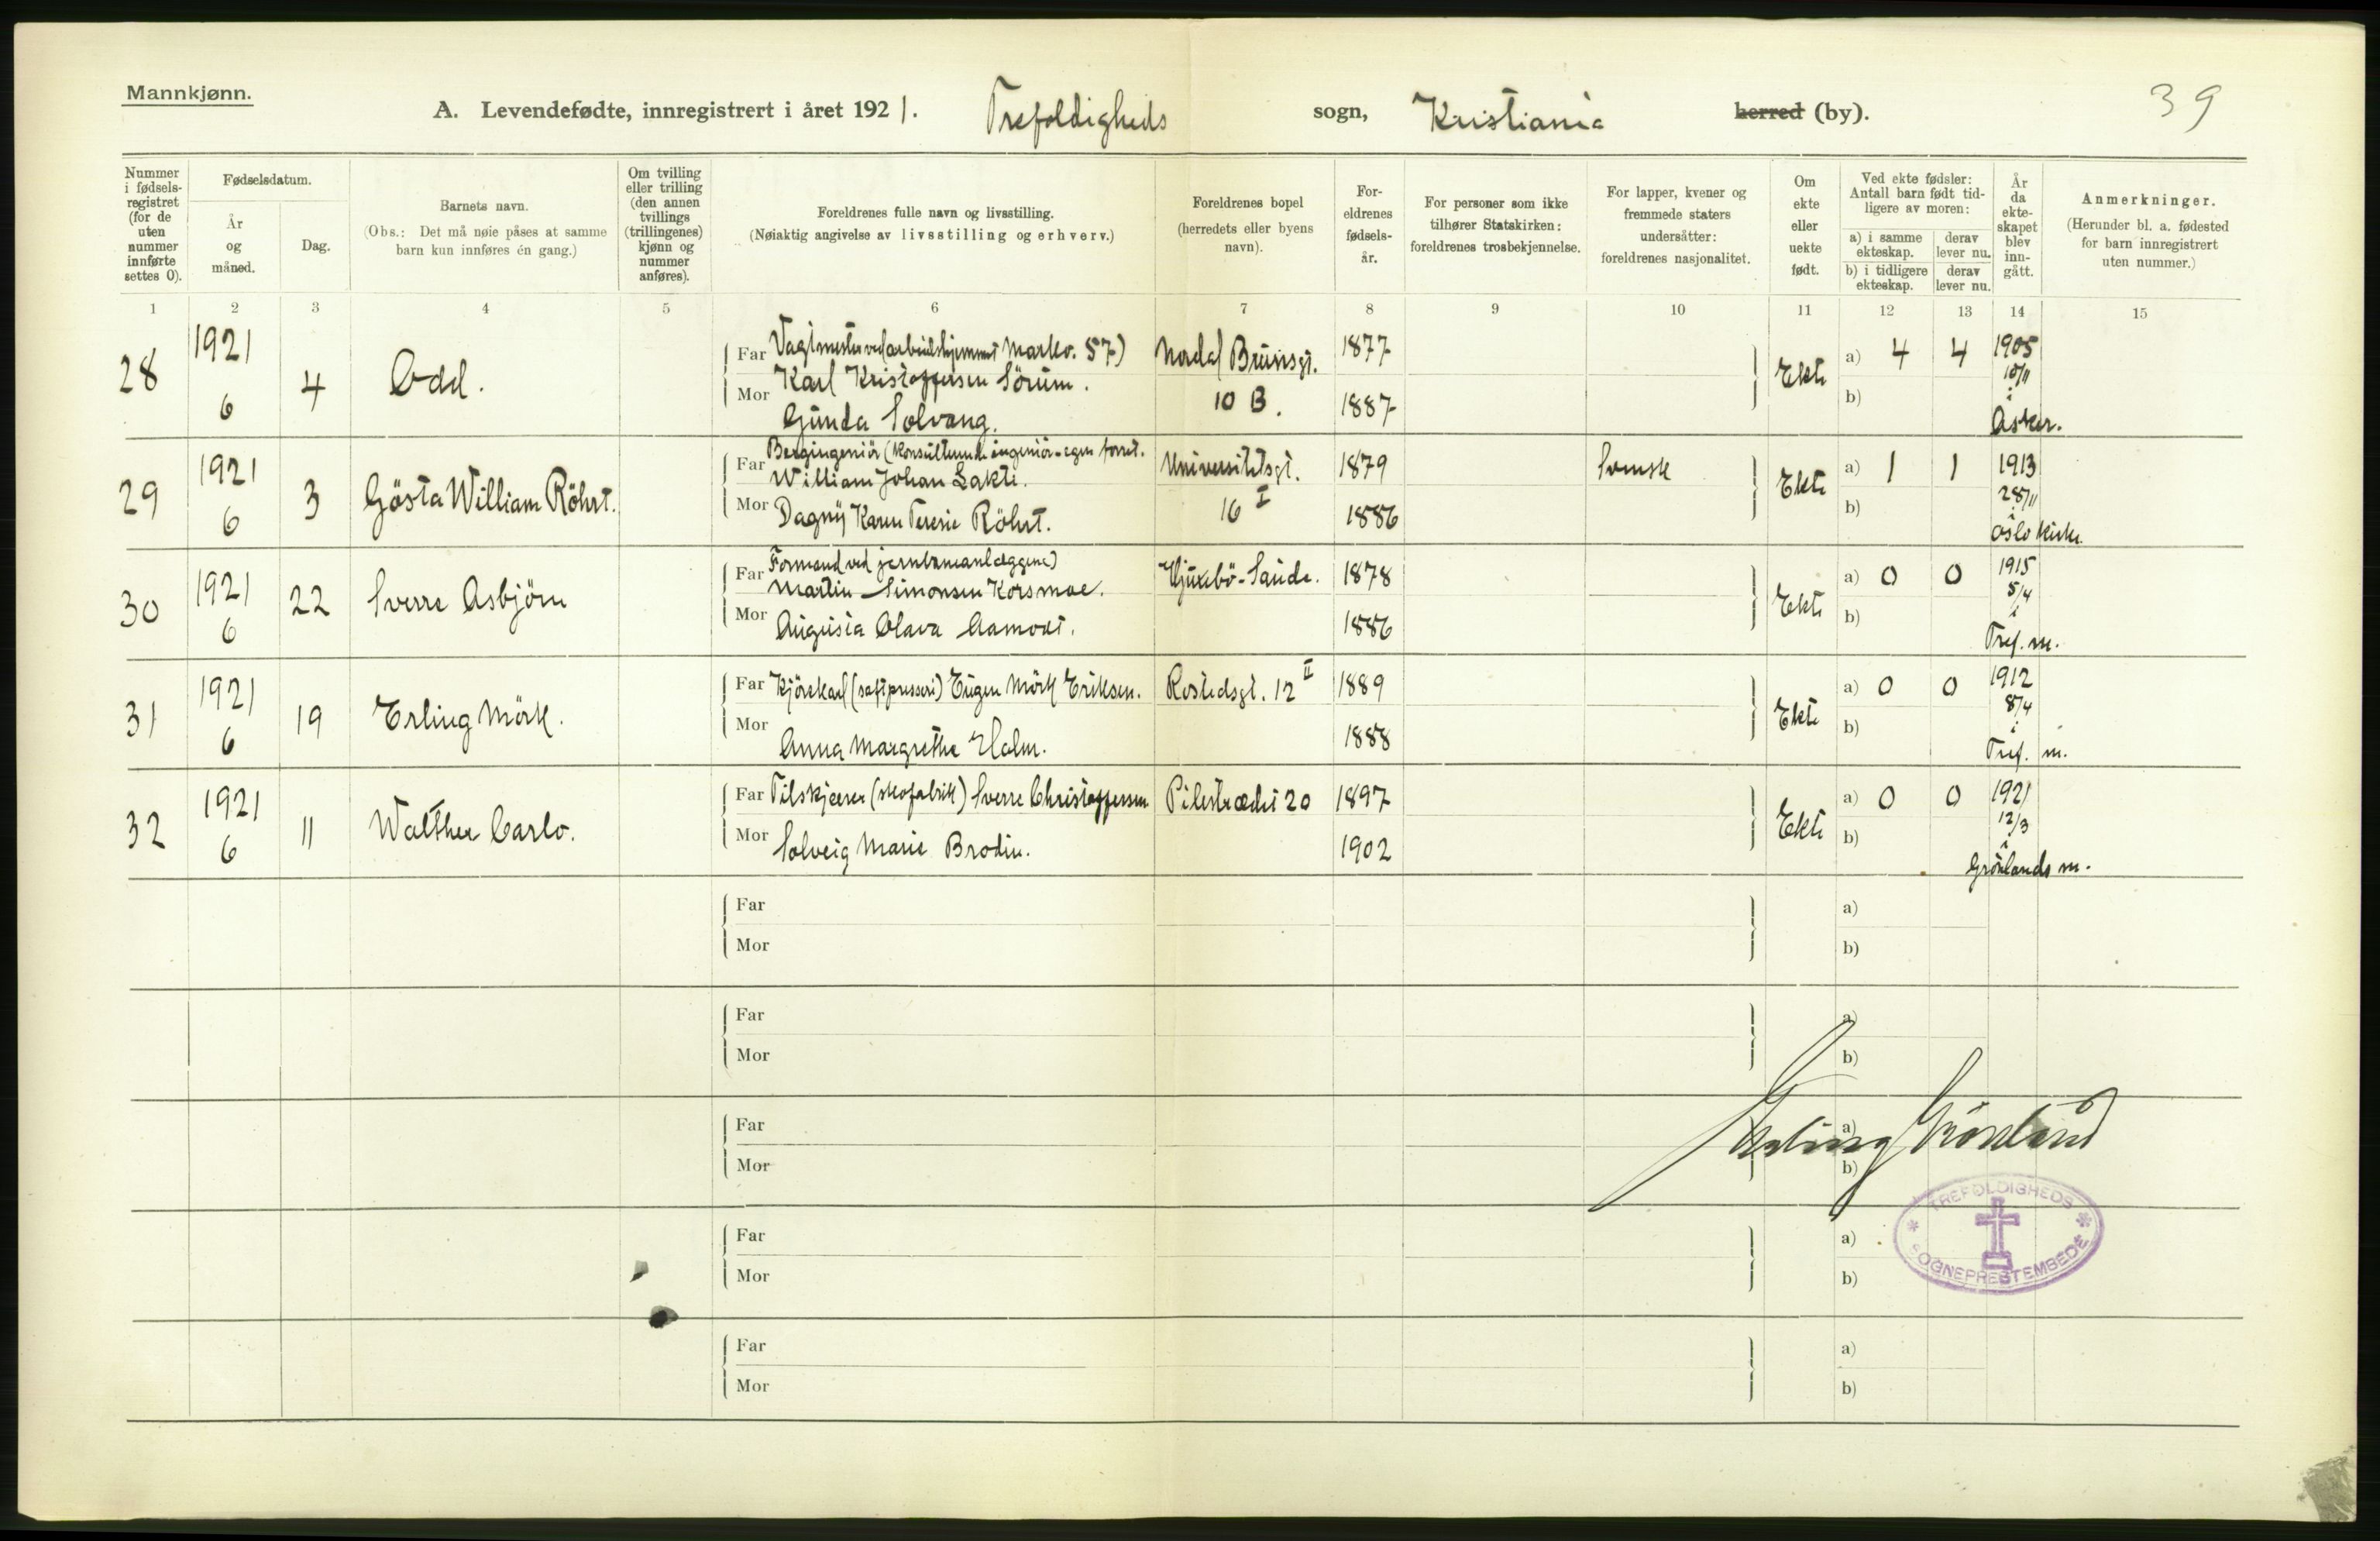 Mannkjønn.
A. Levendefødte, innregistrert i året 1921. Trefoldigheds sogn, Kristiania herred (by).
39
Nummer i fødsels-registret (for de uten nummer innførte settes 0).
Fødselsdatum.
År og måned.
Dag.
Barnets navn.
(Obs.: Det må nøie påses at samme barn kun innføres én gang.)
Om tvilling eller trilling (den annen tvillings (trillingenes) kjønn og nummer anføres).
Foreldrenes fulle navn og livsstilling.
(Nøiaktig angivelse av livsstilling og erhverv.)
Foreldrenes bopel (herredets eller byens navn).
For-eldrenes fødsels-år.
For personer som ikke tilhører Statskirken: foreldrenes trosbekjennelse.
For lapper, kvener og fremmede staters undersåtter: foreldrenes nasjonalitet.
Om ekte eller uekte født.
Ved ekte fødsler: Antall barn født tid-ligere av moren:
a) i samme ekteskap. derav lever nu.
b) i tidligere ekteskap. derav lever nu.
År da ekte-skapet blev inn-gått.
Anmerkninger.
(Herunder bl. a. fødested for barn innregistrert uten nummer.)
1 2 3 4 5 6 7 8 9 10 11 12 13 14 15
28 1921 6 4 Odd.
Far Vagtmester ved arbeidshjemmet Markv. 57)
Karl Kristoffersen Sörum.
Mor Gunda Solvang.
Nordal Brunsgt. 10 B.
1877
1887
Ekte a) 4 4 b)
1905 10/11 i Asker.
29 1921 6 3 Gösta William Röhrt.
Far Bergingeniör (Konsulterende ingeniör - egen forret.
William Johan Lakti.
Mor Dagny Karen Teresie Röhrt.
Universitetsgt. 16 I
1879
1886
Svensk
Ekte a) 1 1 b)
1913 28/11 i Oslo Kirke
30 1921 6 22 Sverre Asbjörn
Far Formand ved jernbaneanlæggene)
Martin Simonsen Korsmoe.
Mor Augusta Olava Aamodt.
Hjuxebö - Saude.
1878
1886
Ekte a) 0 0 b)
1915 5/4 i Tref. m.
31 1921 6 19 Erling Mörk.
Far Kjörekarl (saftpresseri) Eugen Mörk Eriksen.
Mor Anna Margrethe Holm.
Rostedsgt. 12 II
1889
1888
Ekte a) 0 0 b)
1912 8/4 i Tref. m.
32 1921 6 11 Walther Carlo.
Far Tilskjærer (skofabrik) Sverre Christoffersen
Mor Solveig Marie Brodin.
Pilestrædet 20
1897
1902
Ekte a) 0 0 b)
1921 12/3 i Grönlands m.
Far a)
Mor b)
Far a)
Mor b)
Far a)
Mor b)
Erling Grönland
Far a)
Mor b)
TREFOLDIGHEDS * SOGNEPRESTEMBEDE *
Far a)
Mor b)